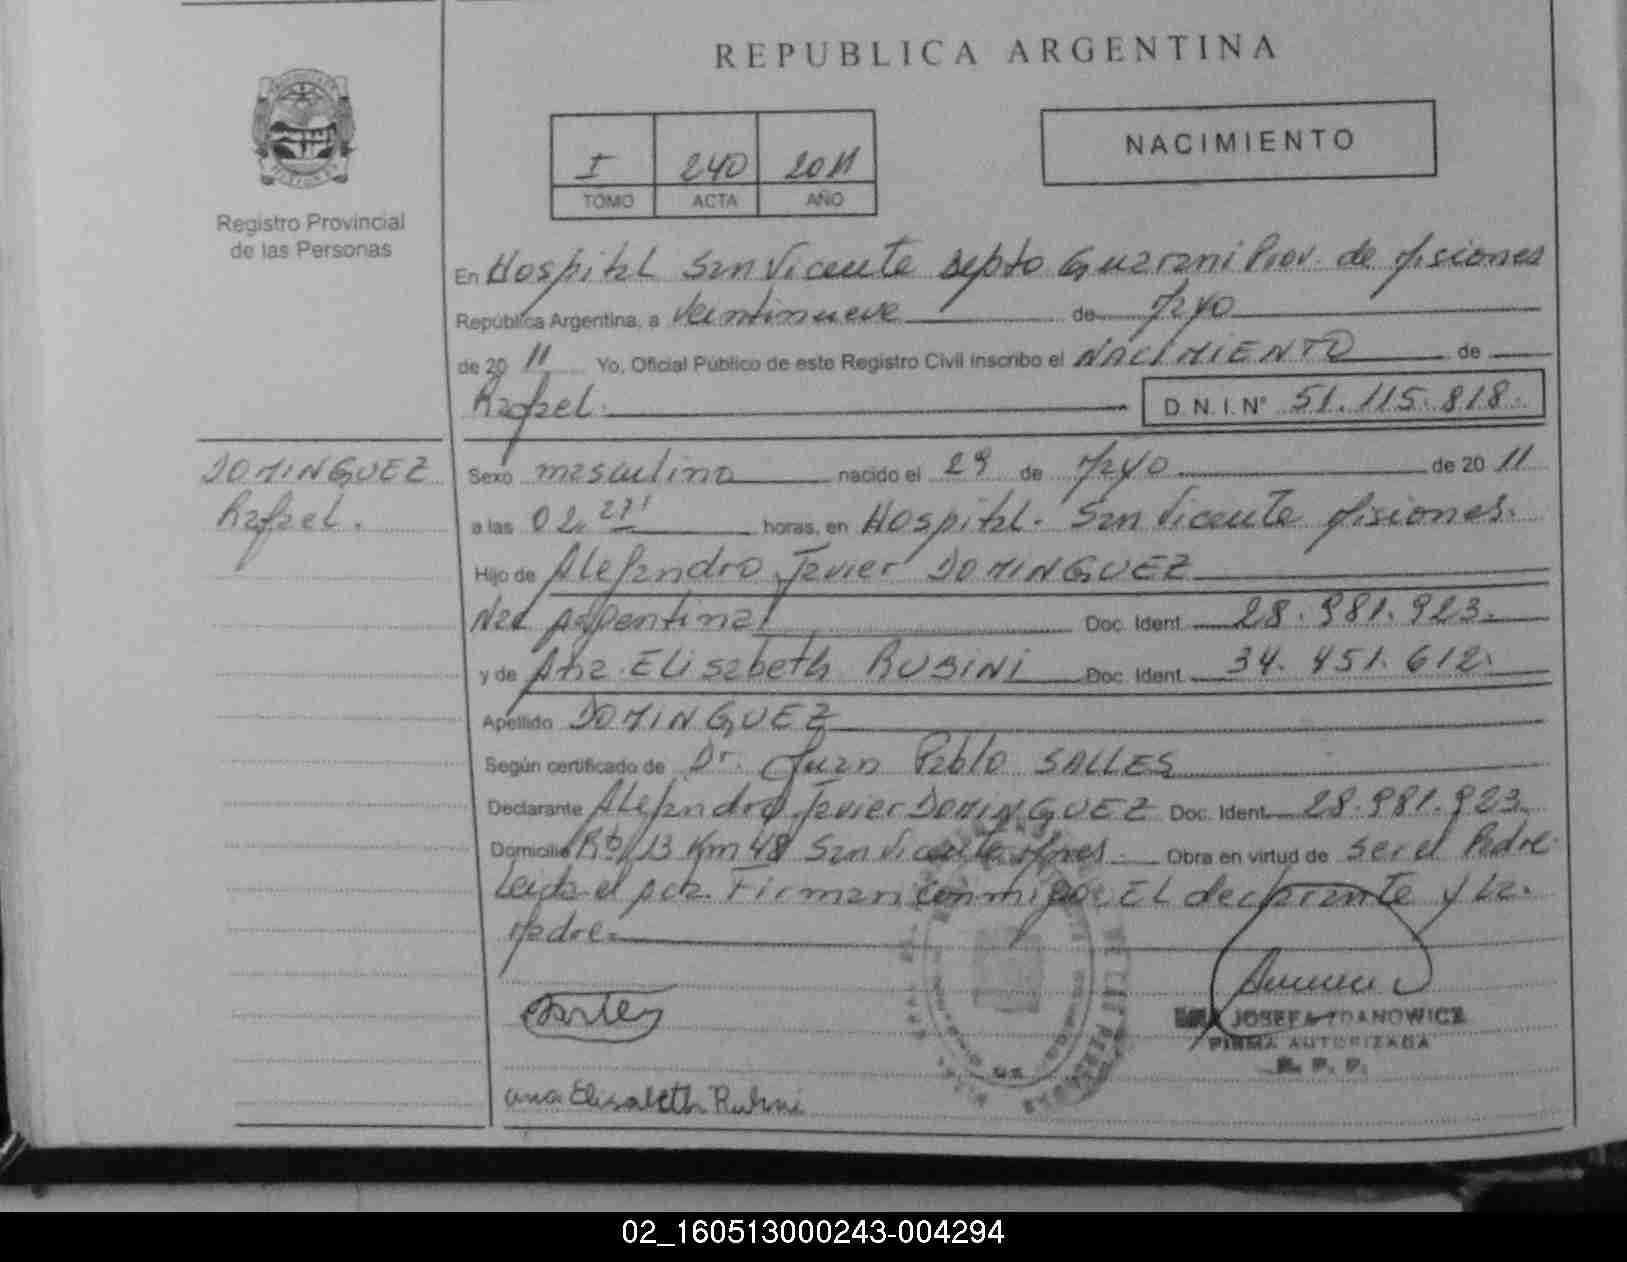 REPUBLICA ARGENTINA
I 240 2011
TOMO ACTA AÑO
NACIMIENTO
Registro Provincial
de las Personas
En Hospital San Vicente depto Guarani Prov. de Misiones
República Argentina, a Veintinueve de Mayo
de 20 11 Yo, Oficial Público de este Registro Civil inscribo el NACIMIENTO de
Rafael. D.N.I.Nº 51.115.818.
DOMINGUEZ
Rafael.
Sexo masculino nacido el 29 de Mayo de 20 11
a las 02. horas, en Hospital. San Vicente Misiones.
Hijo de Alejandro Javier DOMINGUEZ
Nac Argentina Doc. Ident. 28.981.923.
y de Ana Elisabeth RUBINI Doc. Ident. 34.451.612.
Apellido DOMINGUEZ
Según certificado de Dr. Juan Pablo SALLES
Declarante Alejandro Javier DOMINGUEZ Doc. Ident. 28.981.923.
Domicilio Rta 13 Km 48 San Vicente Mnes. Obra en virtud de Ser el Padre
Leida el Acta. Firman conmigo EL declarante y La.
Madre.
JOSEFA
FIRMA AUTORIZADA
R. P. P.
Ana Elisabeth Rubini
02_160513000243-004294